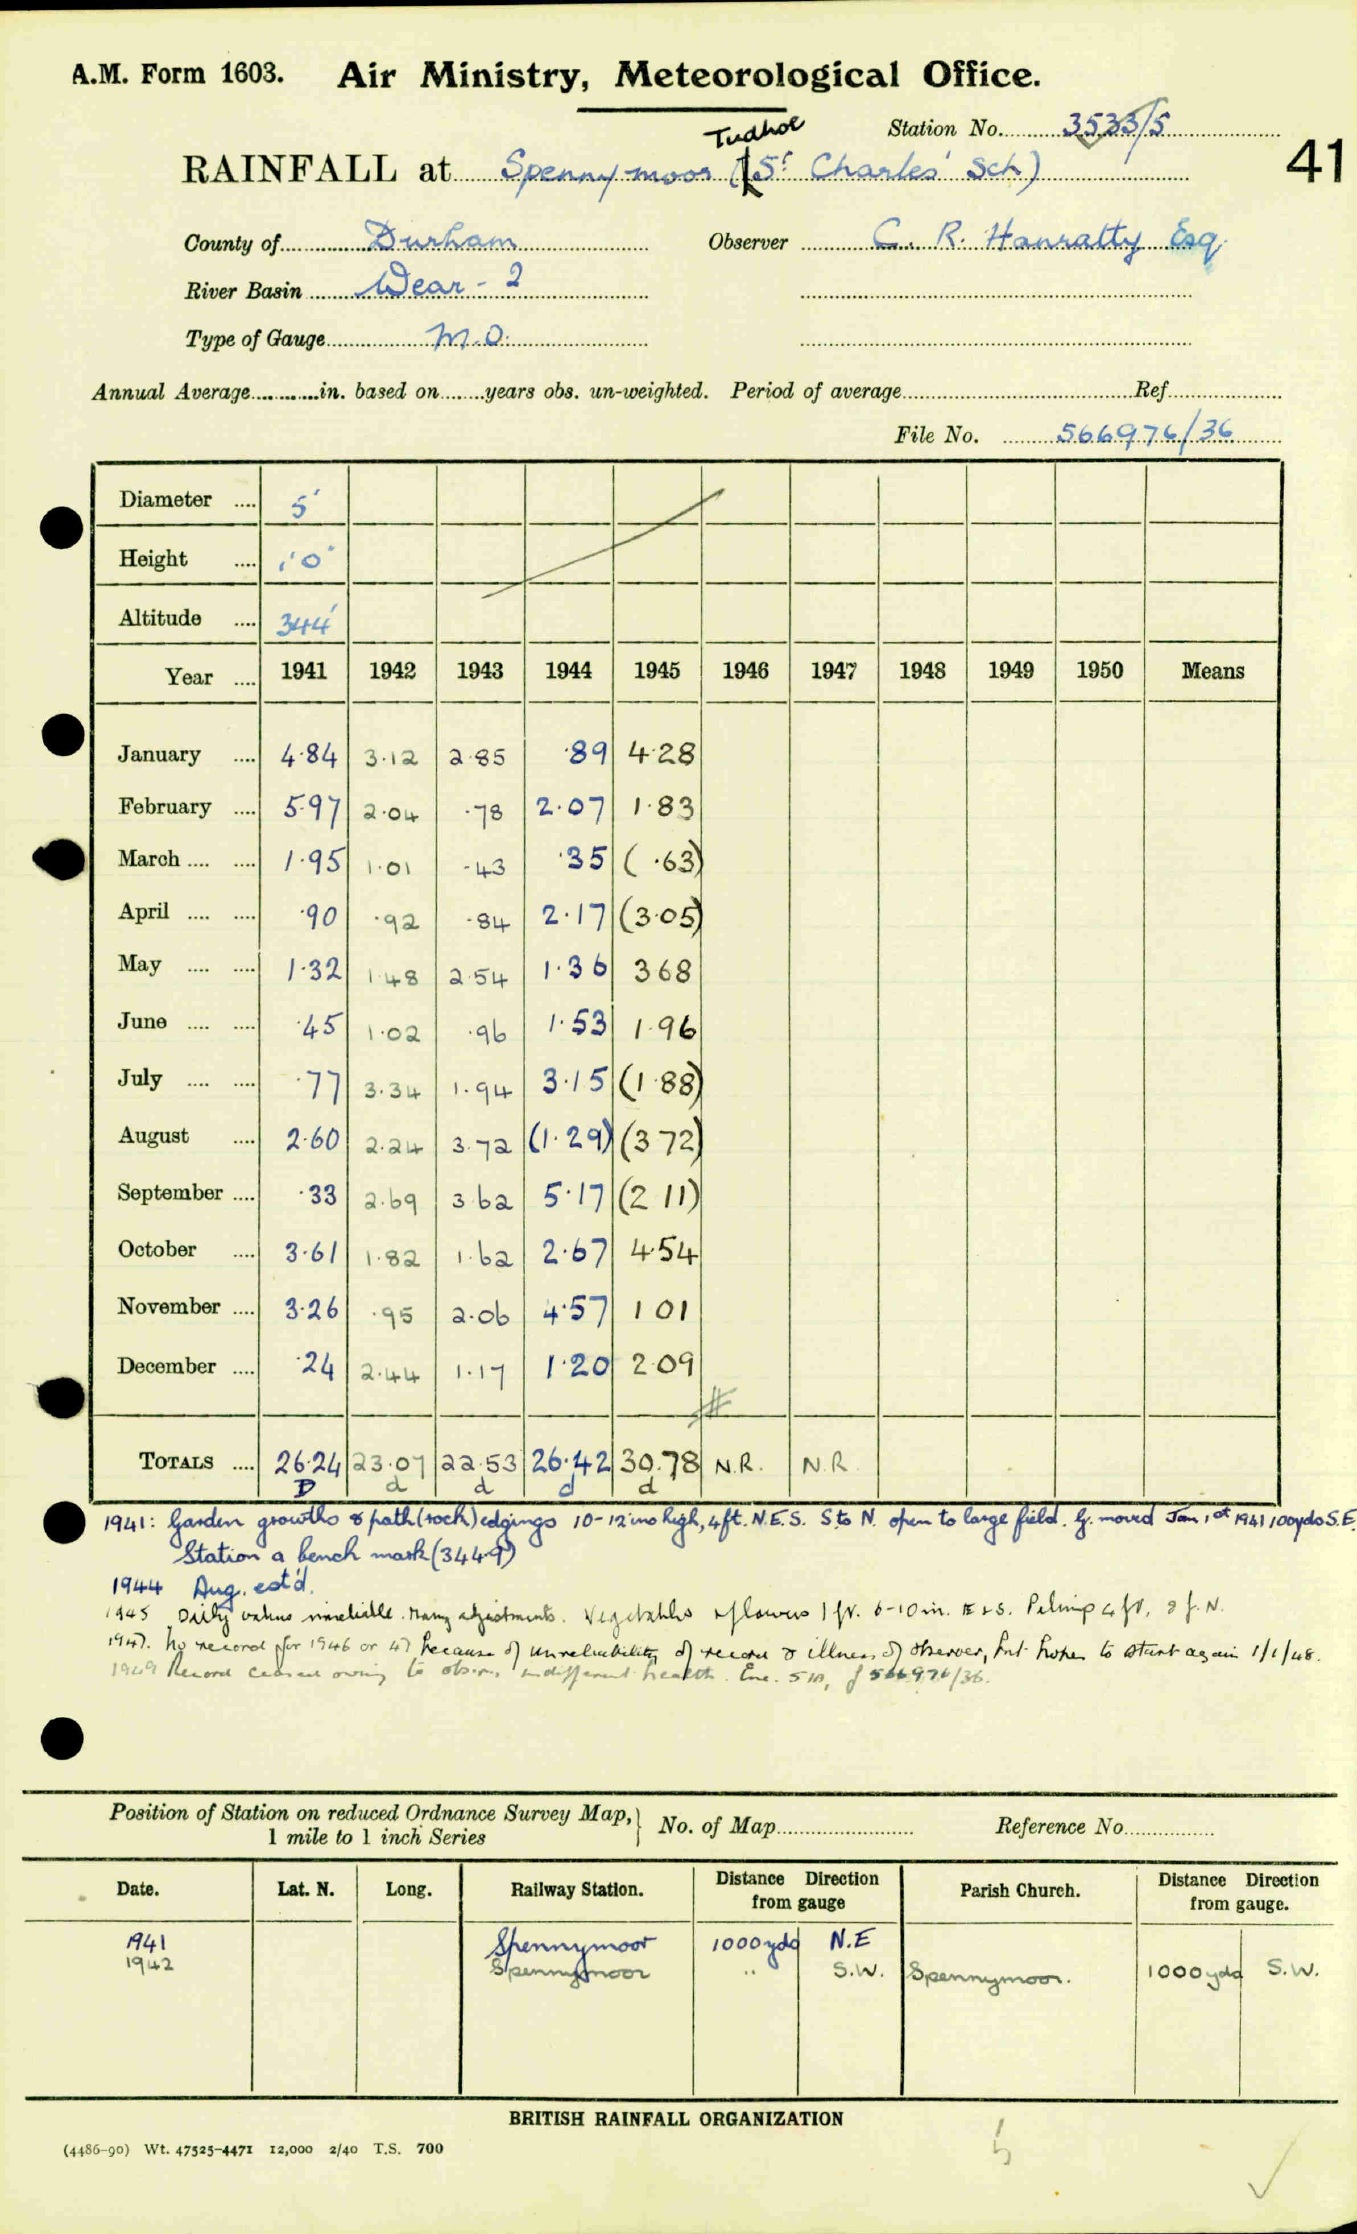 A.M. Form 1603. Air Ministry, Meteorological Office.
Station No. 3533/5
41
Tudhoe
RAINFALL at Spennymoor (St Charles' Sch)
County of Durham Observer C. R. Hanratty Esq.
River Basin Wear - 2
Type of Gauge M.O.
Annual Average in. based on years obs. un-weighted. Period of average Ref
File No. 566976/36
Diameter 5"
Height 1'0"
Altitude 344'
Year 1941 1942 1943 1944 1945 1946 1947 1948 1949 1950 Means
January 4.84 3.12 2.85 .89 4.28
February 5.97 2.04 .78 2.07 1.83
March 1.95 1.01 .43 .35 (.63)
April .90 .92 .84 2.17 (3.05)
May 1.32 1.48 2.54 1.36 3 68
June .45 1.02 .96 1.53 1.96
July .77 3.34 1.94 3.15 (1.88)
August 2.60 2.24 3.72 (1.29) (3 72)
September .33 2.69 3 62 5.17 (2 11)
October 3.61 1.82 1.62 2.67 4.54
November 3.26 .95 2.06 4.57 1 01
December .24 2.44 1.17 1.20 2.09
TOTALS 26.24 23.07 22.53 26.42 30.78 N.R. N.R.
D d d d d
1941: Garden growths & path (rock) edgings 10-12 ins high, 4ft. N.E.S. S. to N. open to large field. G. moved Jan 1st 1941 100yds S.E.
Station a bench mark (344.9)
1944 Aug. est'd.
1945 Daily values unreliable. Many adjustments. Vegetables & flowers 1 ft. 6-10 in. E & S. Paling 4 ft, 8 f. N.
1947. No record for 1946 or 47 because of unreliability of record & illness of observer, but hopes to start again 1/1/48.
1949 Record ceased owing to obsrs. indifferent health. Enc. 51A, of 566976/36.
Position of Station on reduced Ordnance Survey Map, 1 mile to 1 inch Series No. of Map Reference No.
Date. Lat. N. Long. Railway Station. Distance Direction from gauge Parish Church. Distance Direction from gauge.
1941 Spennymoor 1000 yds N.E
1942 Spennymoor " S.W. Spennymoor. 1000 yds S.W.
BRITISH RAINFALL ORGANIZATION
(4486-90) Wt. 47525-4471 12,000 2/40 T.S. 700
5